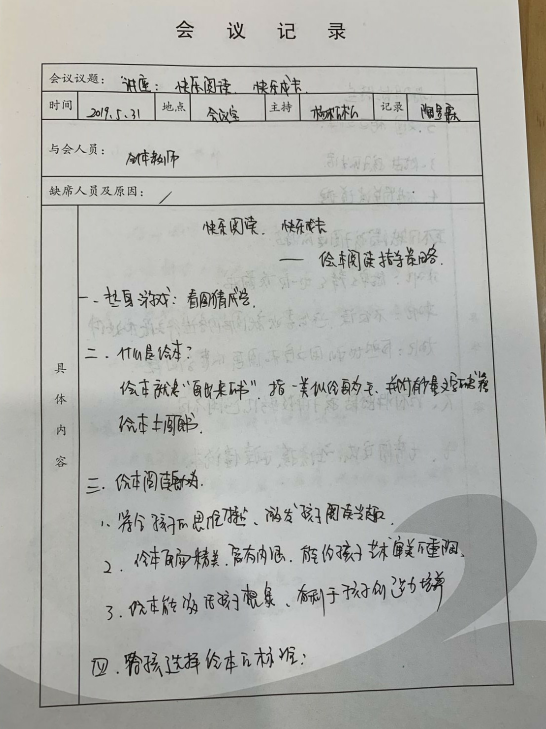 会议记录
会议议题： 讲座：快乐阅读、快乐成长.
时间 2019.5.31 地点 会议室 主持 记录
与会人员： 全体教师
缺席人员及原因： /
具体内容
快乐阅读、快乐成长
—— 绘本阅读指导策略.
一、热身游戏：看图猜成语.
二、什么是绘本？
绘本就是"画出来的书"，指一类以绘画为主，并附有少量文字的书籍
绘本≠图书.
三、绘本阅读
1、符合孩子的思维 、激发孩子阅读兴趣.
2、绘本画面精美，富有内涵，能给孩子艺术审美的熏陶.
3、绘本能激活孩子想象、有利于孩子创造力培养
四、 孩选择绘本的标准：